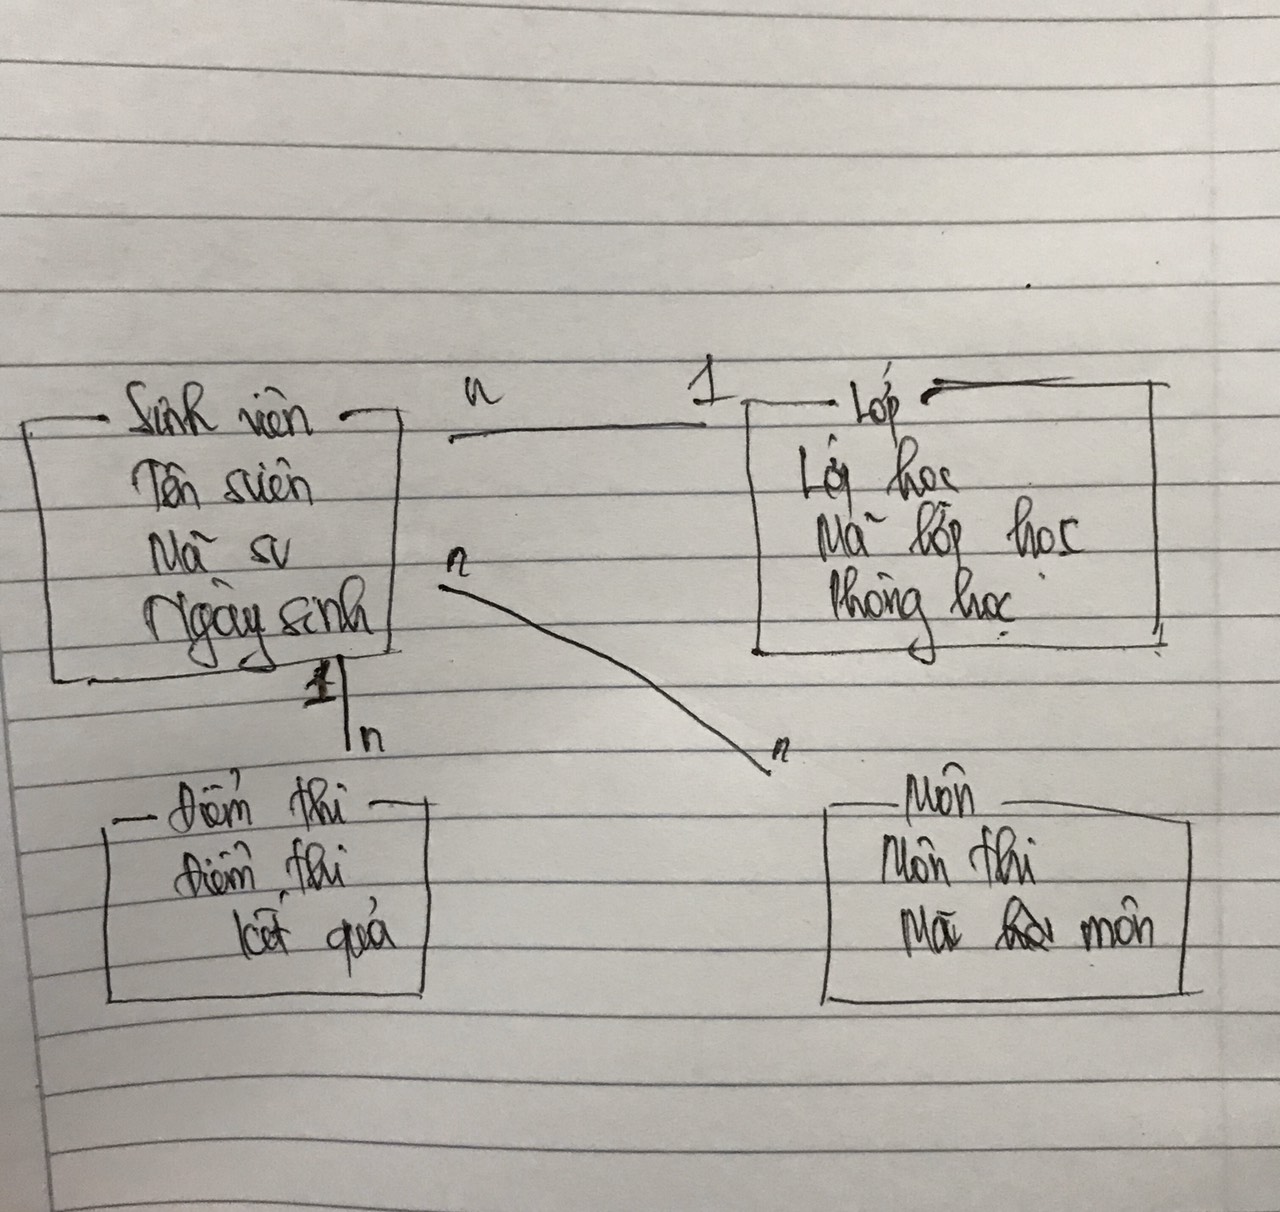 Sinh viên
Tên sviên
Mã sv
Ngày sinh
n 1
Lớp
Lớp học
Mã lớp học
Phòng học
n
n
1
n
Điểm thi
Điểm thi
Kết quả
Môn
Môn thi
Mã môn